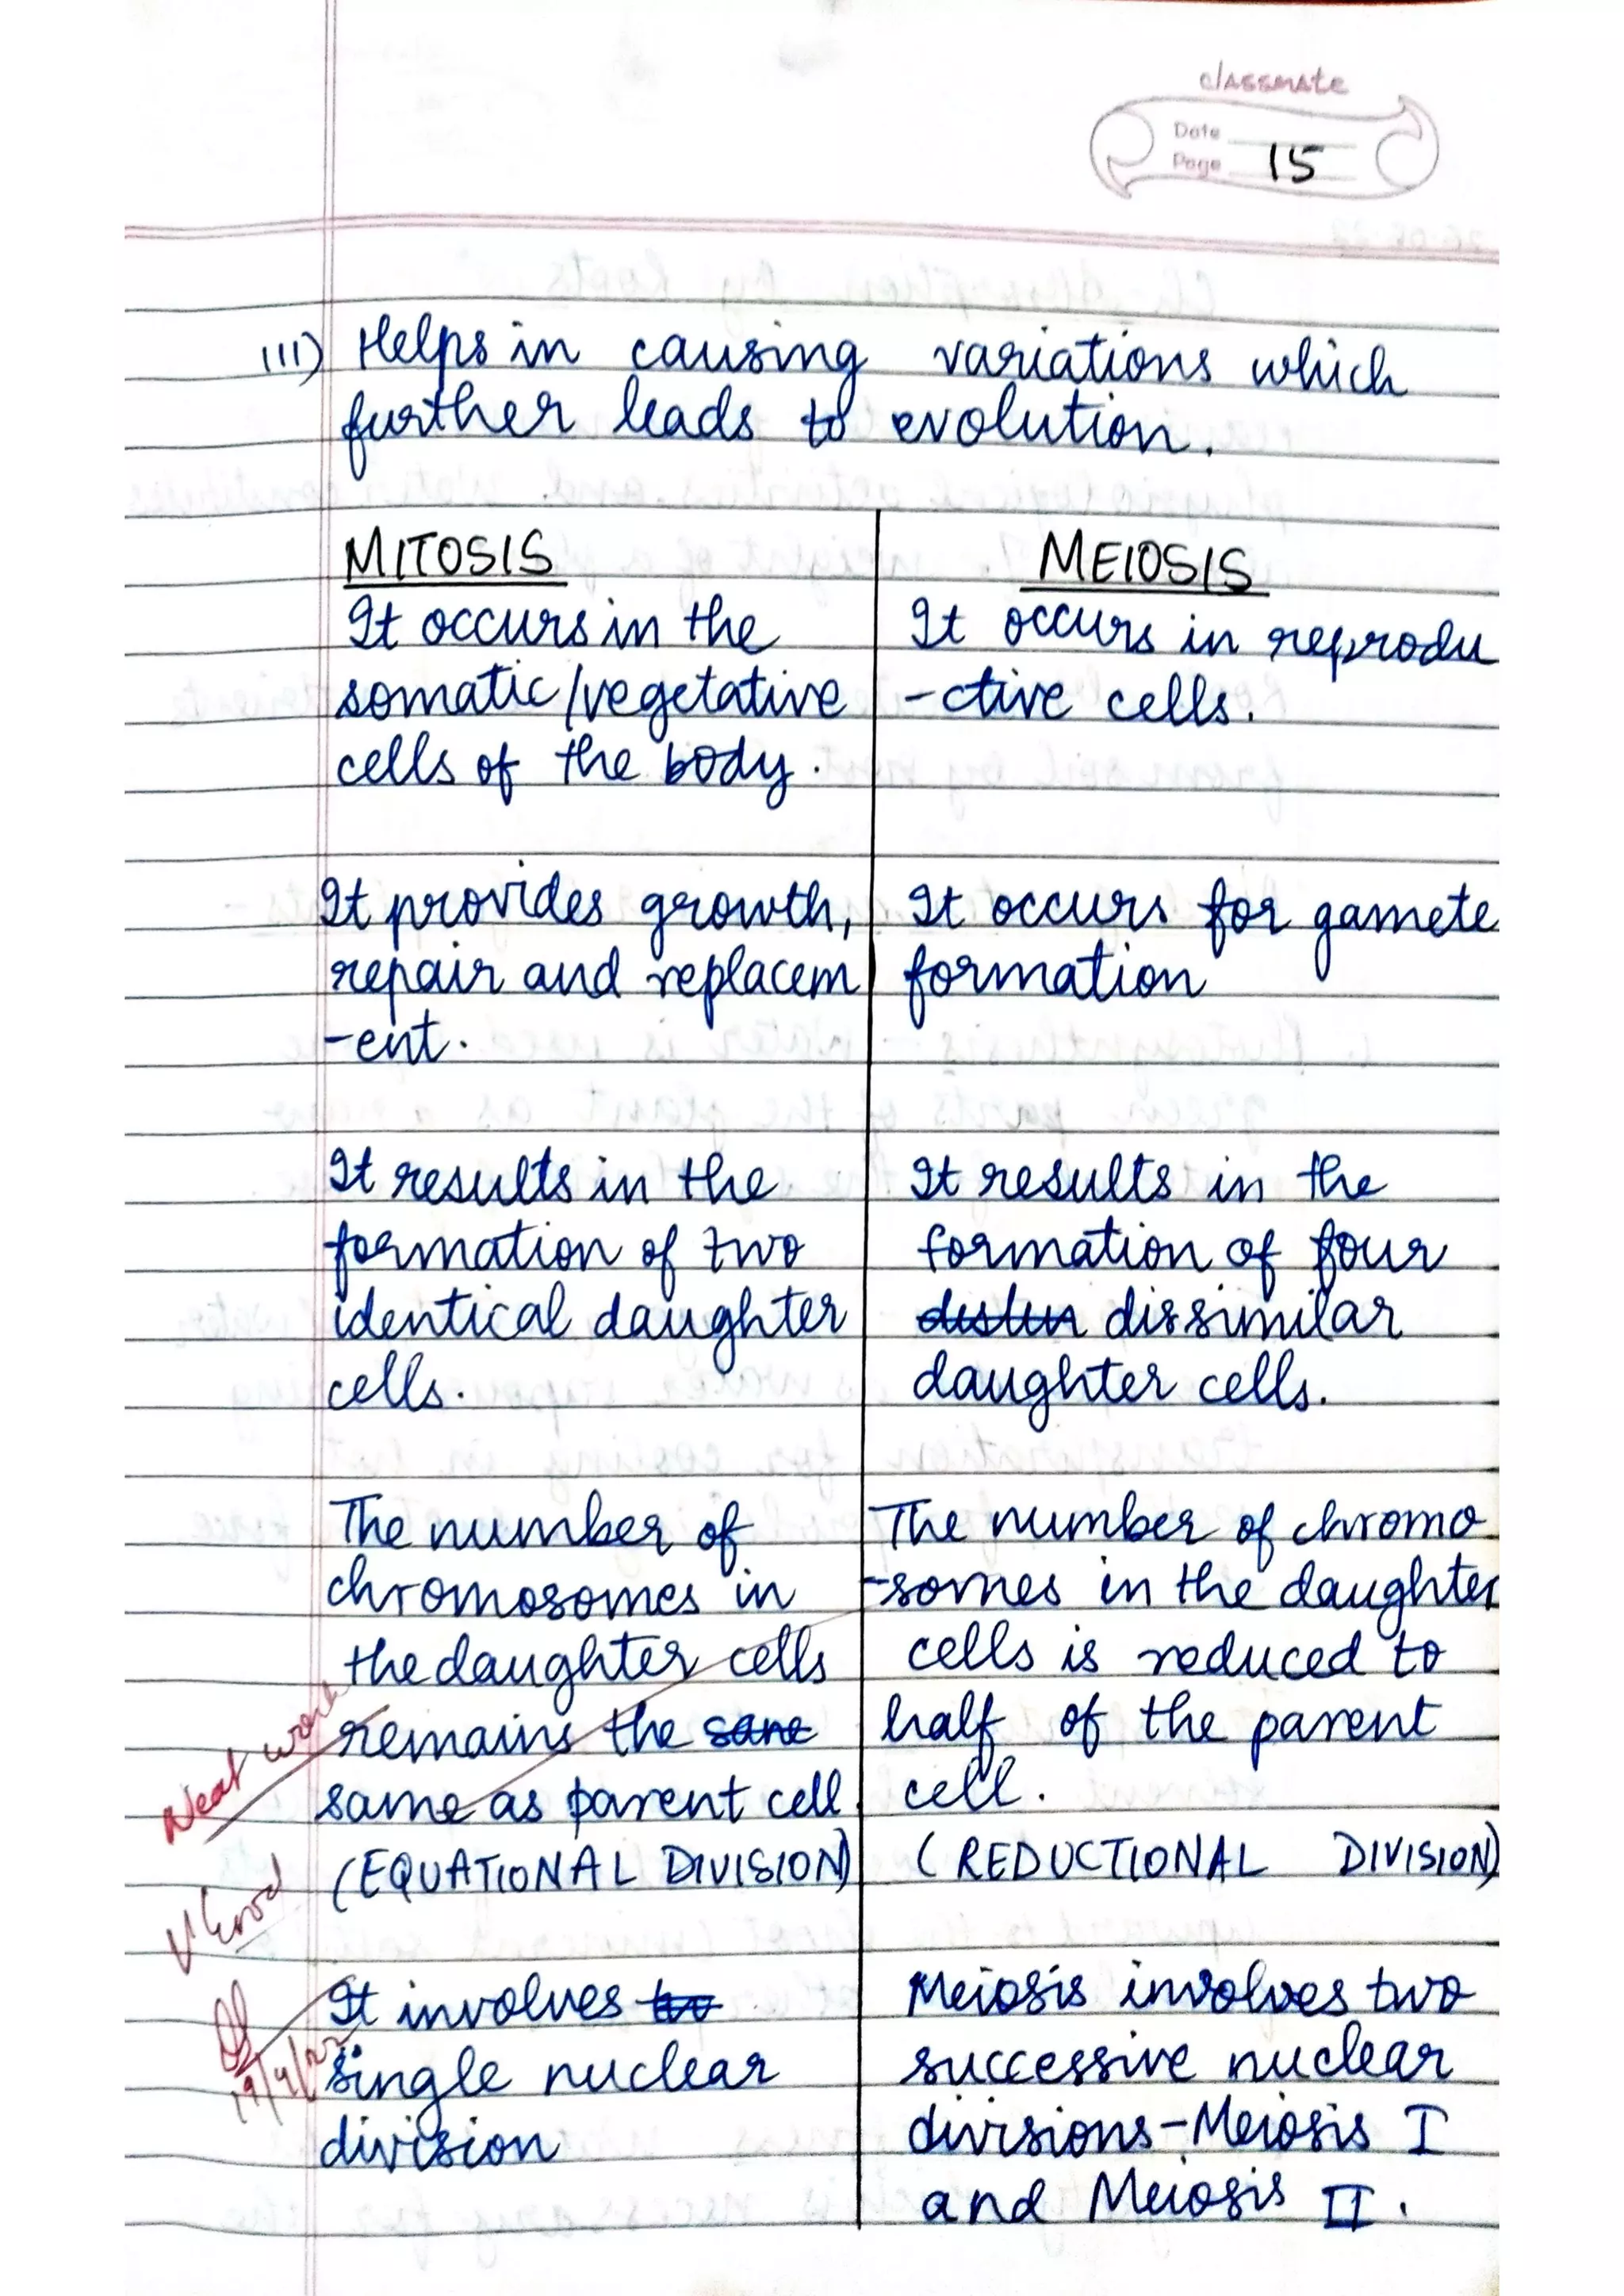 classmate
Date
Page 15
III) Helps in causing variations which
further leads to evolution.
MITOSIS
It occurs in the
somatic/vegetative
cells of the body.
It provides growth,
repair and replacem
-ent.
It results in the
formation of two
identical daughter
cells.
The number of
chromosomes in
the daughter cells
remains the sane
same as parent cell
(EQUATIONAL DIVISION)
It involves two
single nuclear
division
MEIOSIS
It occurs in reprodu
-ctive cells.
It occurs for gamete
formation
It results in the
formation of four
dissimilar
daughter cells.
The number of chromo
-somes in the daughter
cells is reduced to
half of the parent
cell.
(REDUCTIONAL DIVISION)
Meiosis involves two
successive nuclear
divisions-Meiosis I
and Meiosis II.
Neat work
V Good
19/4/22